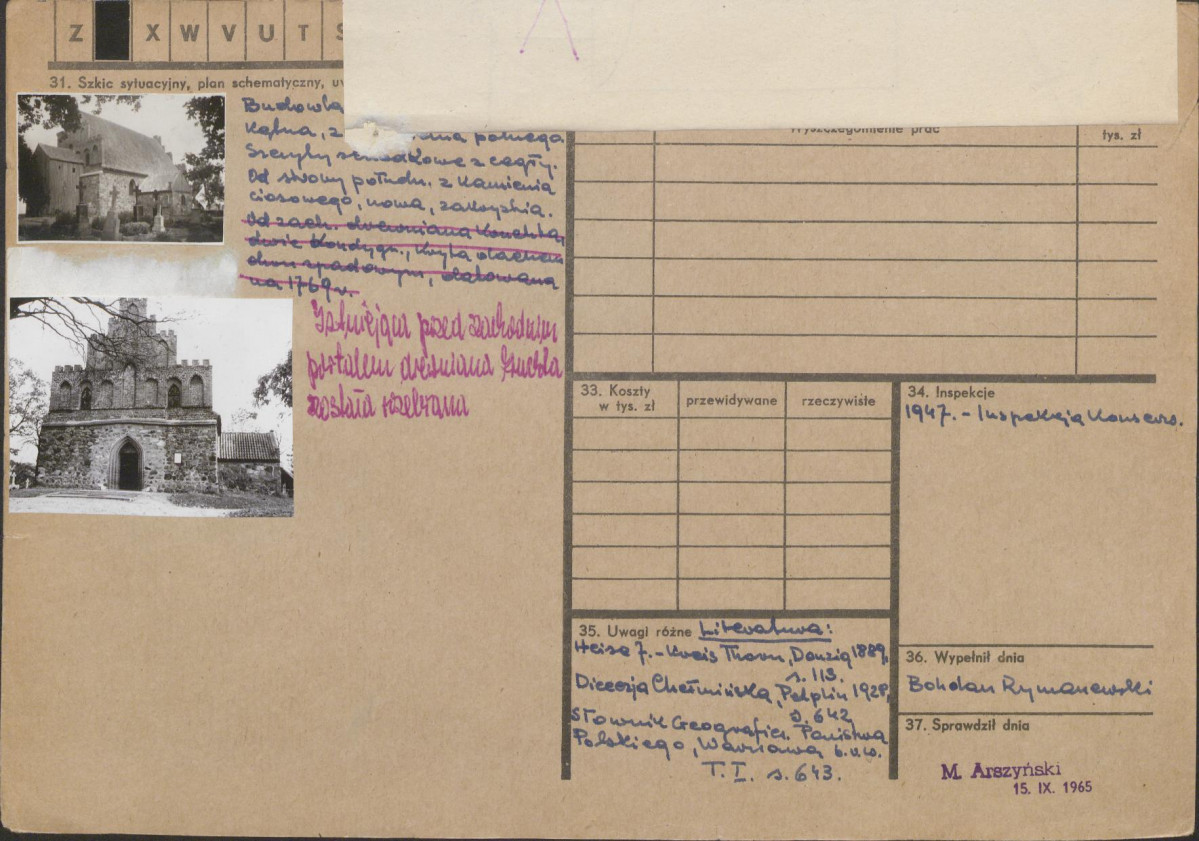 Z X W V U T S
A
31. Szkic sytuacyjny, plan schematyczny, uw
Budowla
kątna, z polnego
Szczyty schodkowe z cegły.
Od strony połudn. z kamienia
ciosowego, nowa, zakrystia.
Od zach. drewniana kruchta,
dwie kondygn., kryta dachem
dwuspadowym, datowana
na 1769 r.
Istniejąca przed zachodnim
portalem drewniana kruchta
została rozebrana
Wyszczególnienie prac
tys. zł
33. Koszty
w tys. zł
przewidywane
rzeczywiste
34. Inspekcje
1947. - Inspekcja Konserw.
35. Uwagi różne Literatura:
Heise J. - Kreis Thorn, Danzig 1889,
s. 113.
Diecezja Chełmińska, Pelplin 1928,
s. 642,
Słownik Geograficz. Państwa
Polskiego, Warszawa b.r.w.
T. I. s. 643.
36. Wypełnił dnia
Bohdan Rymaszewski
37. Sprawdził dnia
M. Arszyński
15. IX. 1965